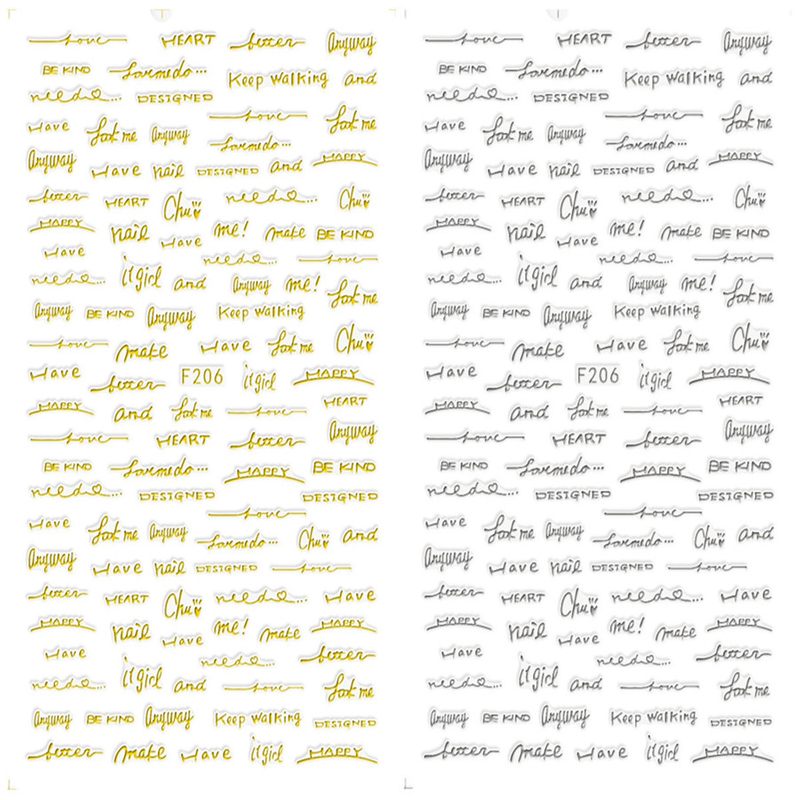 love HEART better Anyway
BE KIND Keep walking and
need DESIGNED love
Have Look me Anyway Look me
Anyway Have nail DESIGNED and HAPPY
better HEART Chu need... Chu
HAPPY nail Have me! make BE KIND
Have need... love
need... it girl and Anyway me! Look me
Anyway BE KIND Anyway Keep walking
love make Have Look me Chu
Have better F206 it girl HAPPY
HAPPY and Look me love HEART
love HEART better Anyway
BE KIND HAPPY BE KIND
need... DESIGNED DESIGNED
Have Look me Anyway love Chu and
Anyway Have nail DESIGNED love
better HEART Chu need... Have
HAPPY nail Have me! make HAPPY
Have need... better
need... it girl and love Look me
Anyway BE KIND Anyway Keep walking DESIGNED
better make Have it girl HAPPY
love HEART better Anyway
BE KIND Keep walking and
need DESIGNED love
Have Look me Anyway Look me
Anyway Have nail DESIGNED and HAPPY
better HEART Chu need... Chu
HAPPY nail Have me! make BE KIND
Have need... love
need... it girl and Anyway me! Look me
Anyway BE KIND Anyway Keep walking
love make Have Look me Chu
Have better F206 it girl HAPPY
HAPPY and Look me love HEART
love HEART better Anyway
BE KIND HAPPY BE KIND
need... DESIGNED DESIGNED
Have Look me Anyway love Chu and
Anyway Have nail DESIGNED love
better HEART Chu need... Have
HAPPY nail Have me! make HAPPY
Have need... better
need... it girl and love Look me
Anyway BE KIND Anyway Keep walking DESIGNED
better make Have it girl HAPPY